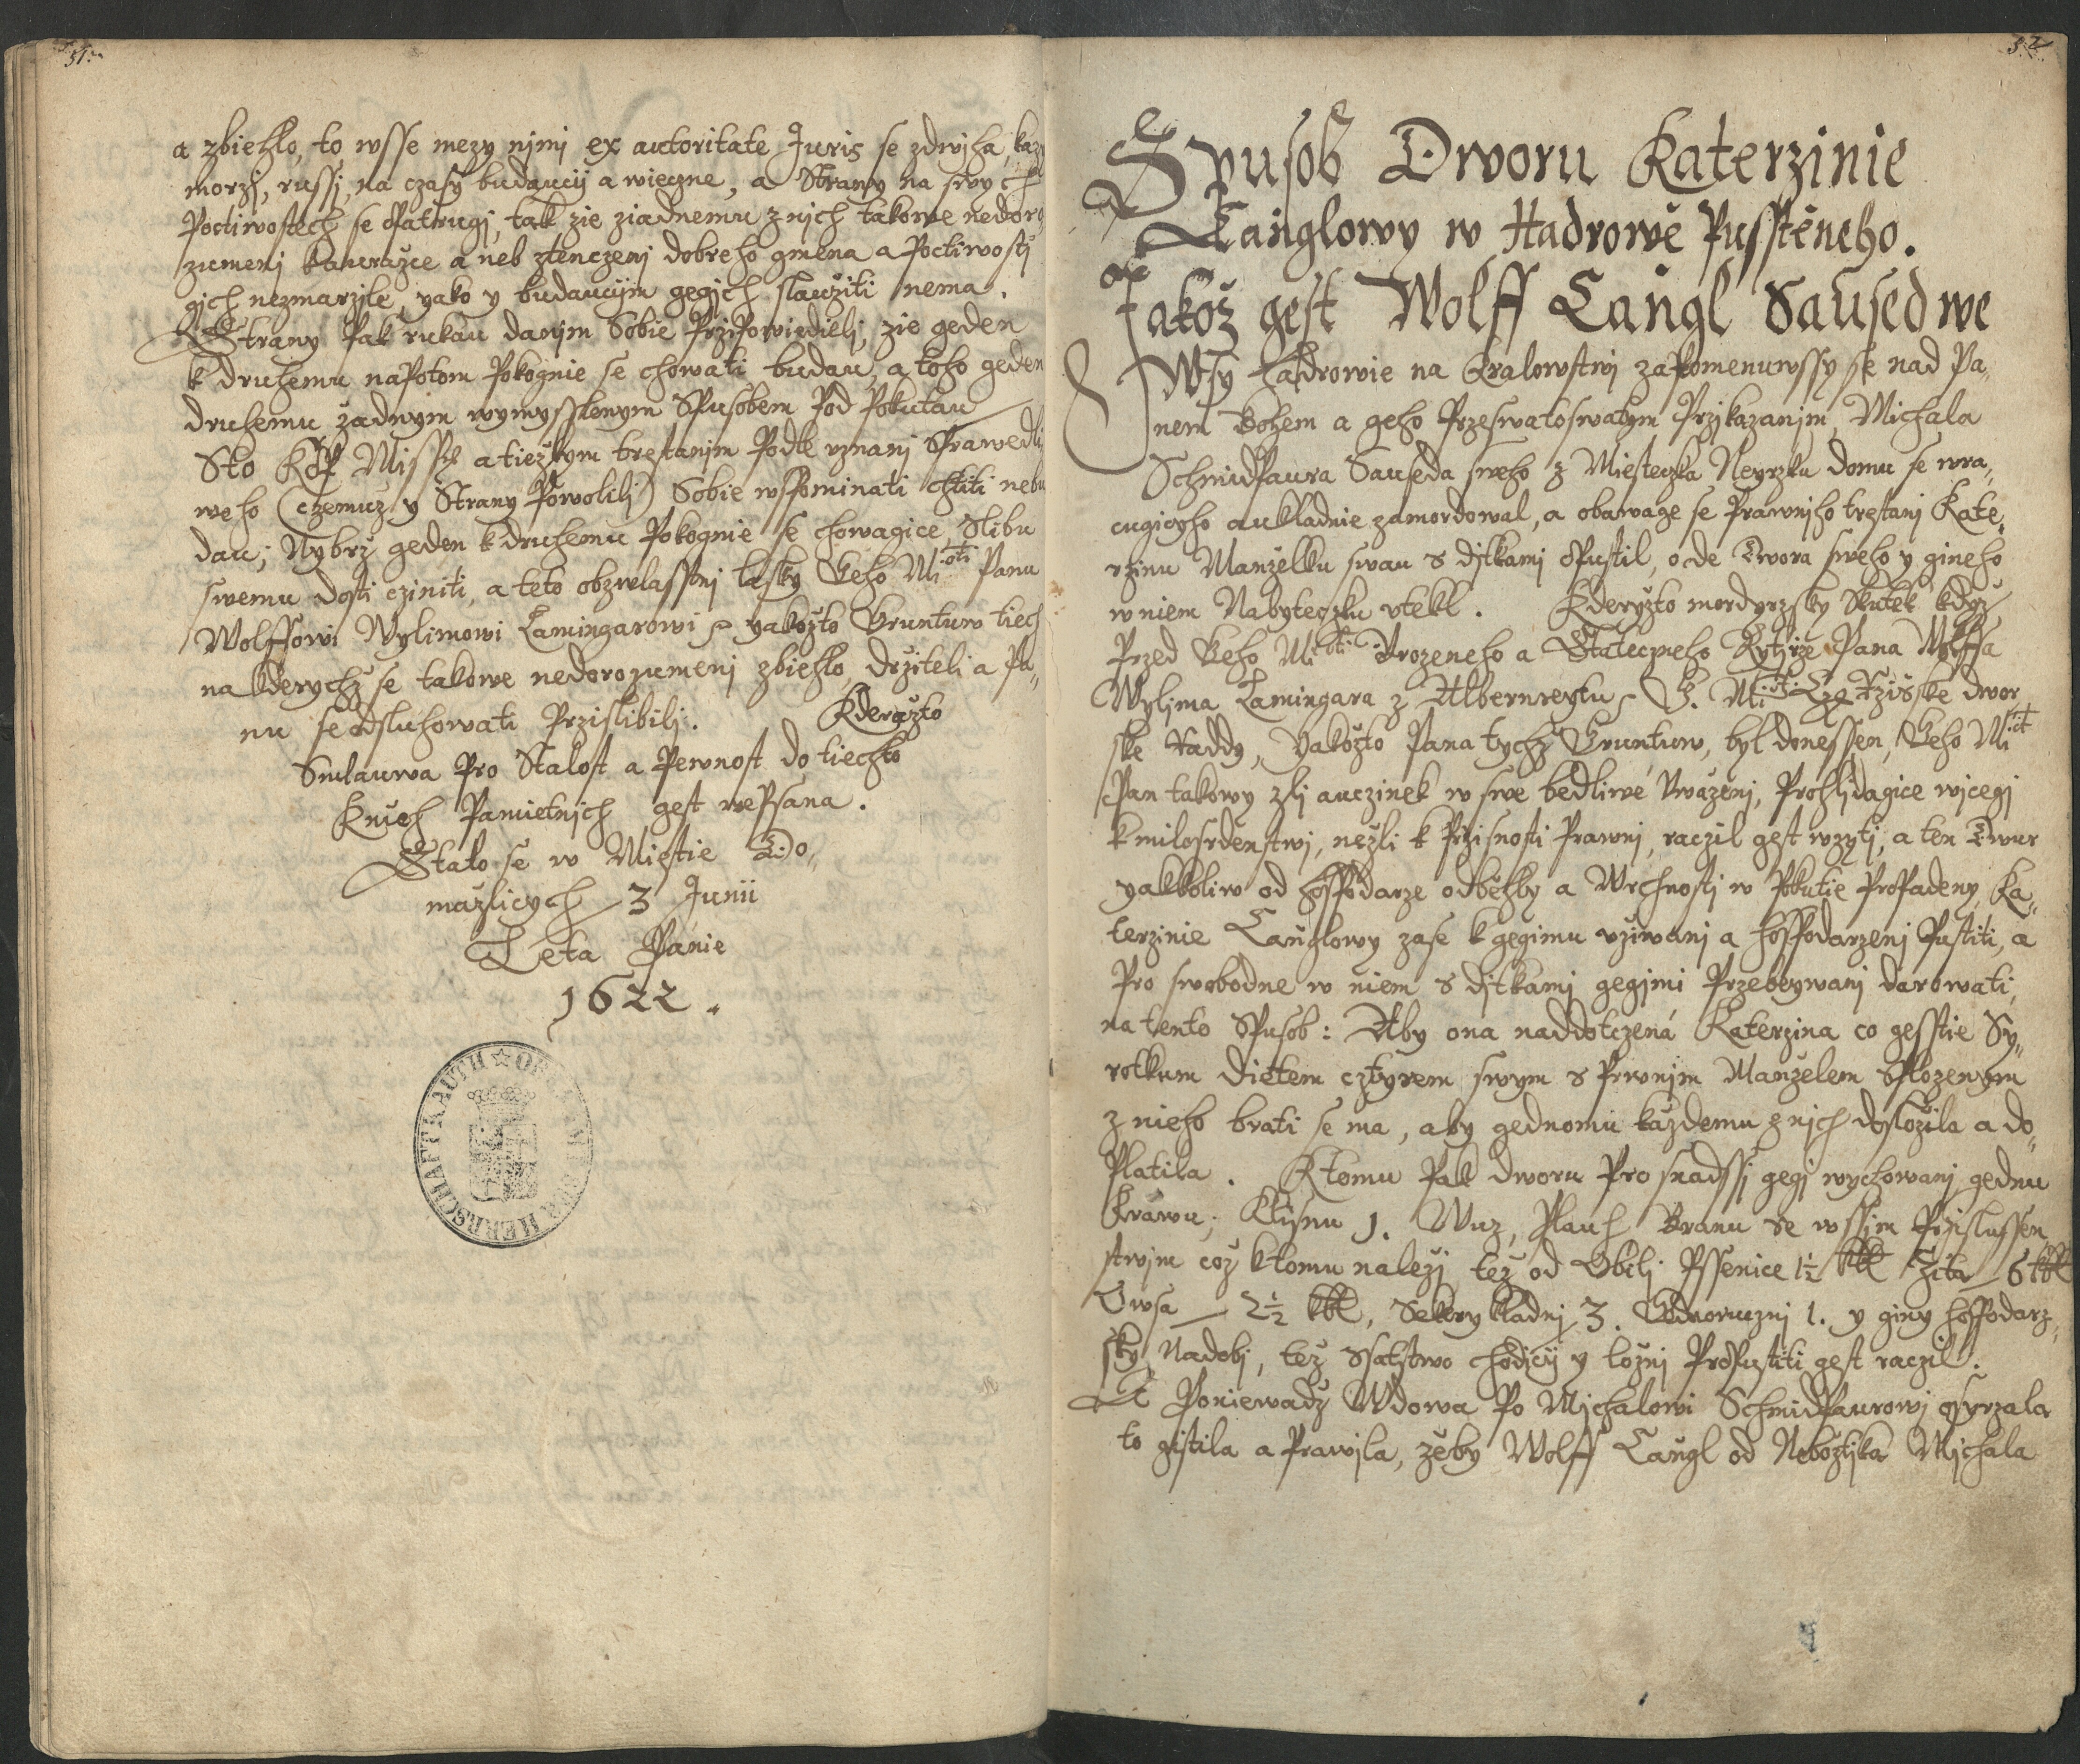 51.
a zbiehlo, to wsse mezy nimi ex autoritate Juris se zdwiha, kazy
morzi, russi, na czasy budauczy a wieczne, a Strany na swych
Poctiwostech se opatrugj, tak zie ziadnemu z nich takowe nedoro
zumenj k aurazce a neb ztenczenj dobreho gmena a Poctiwosti
gich nezmarzile, yako y budauczim gegich slaužiti nema.
Strany Pak rukau danjm Sobie Przipowiedieli, zie geden
k druhemu napotom Pokognie se chowati budau, a toho geden
druhemu žadnym wymysslenym Spusobem Pod Pokutau
Sto Kop Miss: a tiežkym trestanjm Podle uznanj Sprawedli
weho (czemuz y Strany Powolili) Sobie wspominati chtiti nebu
dau; Nybrz geden k druhemu Pokognie se chowagice, Slibu
swemu dosti cziniti, a teto obzwlasstnj lasky Geho Mi:oti Panu
Wolffowi Wylimowi Lamingarowi yakožto Gruntuw tiech
na kderychž se takowe nedorozumenj zbiehlo, držiteli a Pa„
nu se odsluhowati Przislibilj. Kderažto
Smlauwa Pro Stalost a Pewnost do tiechto
Knieh Pamietnich gest wepsana.
Stalo se w Miestie Do„
mazlicych 3 Junii
Leta Panie
1622.
HERRSCHAFT KAUTH
52.
Spusob Dworu Katerzinie
Langlowy w Hadrowě Pusstěneho.
Jakož gest Wolff Langl Saused we
Wsy Hadrowie na Kralowstwj zapomenuwssy se nad Pa„
nem Bohem a geho Przeswatoswatym Przikazanjm, Michala
Schmidpaura Sauseda sweho z Miesteczka Neyrzka domu se wra„
cugicyho aukladnie zamordowal, a obawage se Prawnjho trestanj Kate„
rzinu Manželku swau s ditkami opustil, ode Dwora sweho y gineho
w niem Nabyteczku utekl. Kderyžto mordyrzsky Skutek když
Przed Geho Mi:oti Urozeneho a Stateczneho Rytirze Pana Wolffa
Wylima Lamingara z Albernreytu G. Mi:ti Czýsařské dwor
ske Raddy, Yakožto Pana tychž Gruntuw, byl donessen, Geho Mi:st
Pan takowy zlj auczinek w swe bedliwé Uwaženj, Prohlidagice wicegi
k milosrdenstwj, nežli k Przisnosti Prawnj, raczil gest wzyti, a ten Dwur
yakkoliw od hospodarze odběhly a Wrchnosti w Pokutie Propadeny, Ka„
terzinie Langlowy zase k gegimu užiwanj a hospodarzenj Pustiti, a
Pro swobodne w niem s ditkami gegimi Przebywanj darowati,
na tento Spusob: Aby ona naddotczená Katerzina co gesstie Sy„
rotkum dietem cztyrem swym s Prwnjm Manželem Splozenym
z nieho brati se ma, aby gednomu každemu z nich dosložila a do„
Platila. K tomu Pak dworu Pro snadssj gegj wychowanj gednu
Krawu, Klisnu 1. Wuz, Pluh Branu se wssim Przislussen„
stwjm což k tomu naležj, tež od Obilj Pssenice 1½ kbl Žita 6 kbl
Owsa 2½ kbl, Sekery kladnj 3. Gednorucznj 1. y giny hospodarz„
sky Nadobj, tež Ssatstwo chodicý y ložnj Propustiti gest raczil.
A Poniewadž Wdowa Po Michalowi Schmidpaurowi osyrzala
to gistila a Prawila, žěby Wolff Langl od Nebožtjka Michala